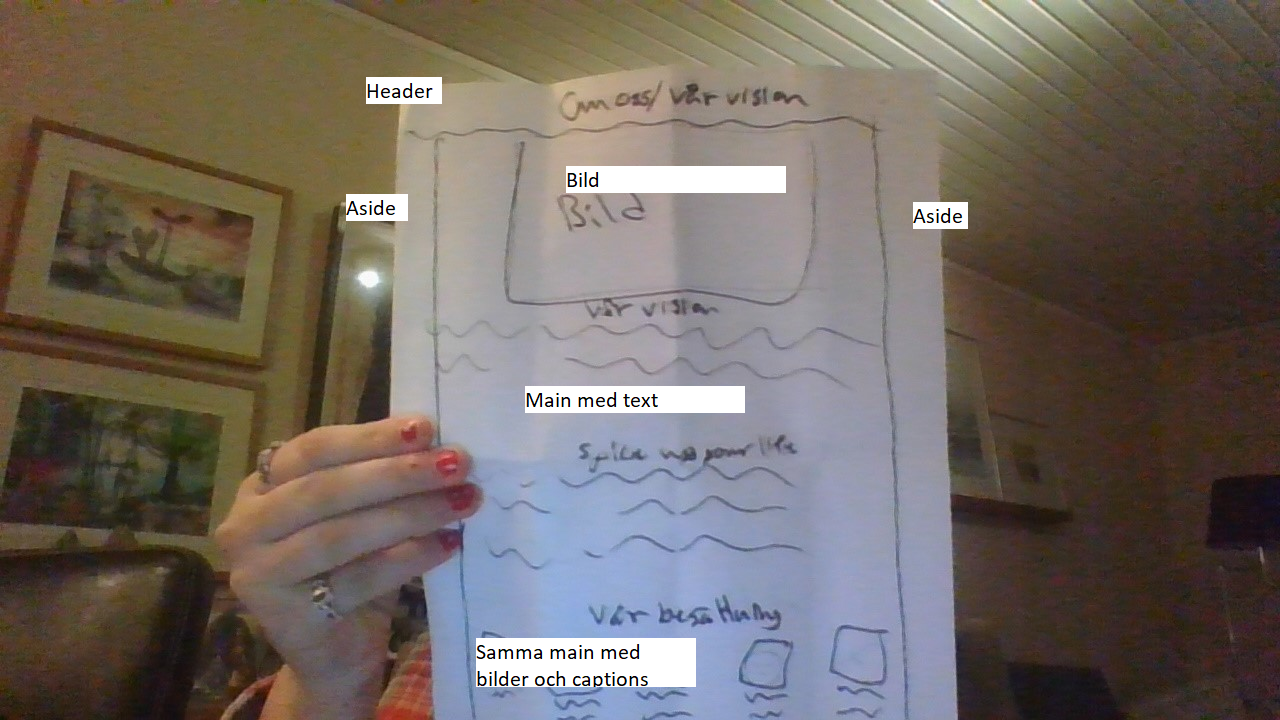 Header
Om oss/ vår vision
Bild
Bild
Aside
Aside
vår vision
Main med text
Spice up your life
Vår besättning
Samma main med
bilder och captions